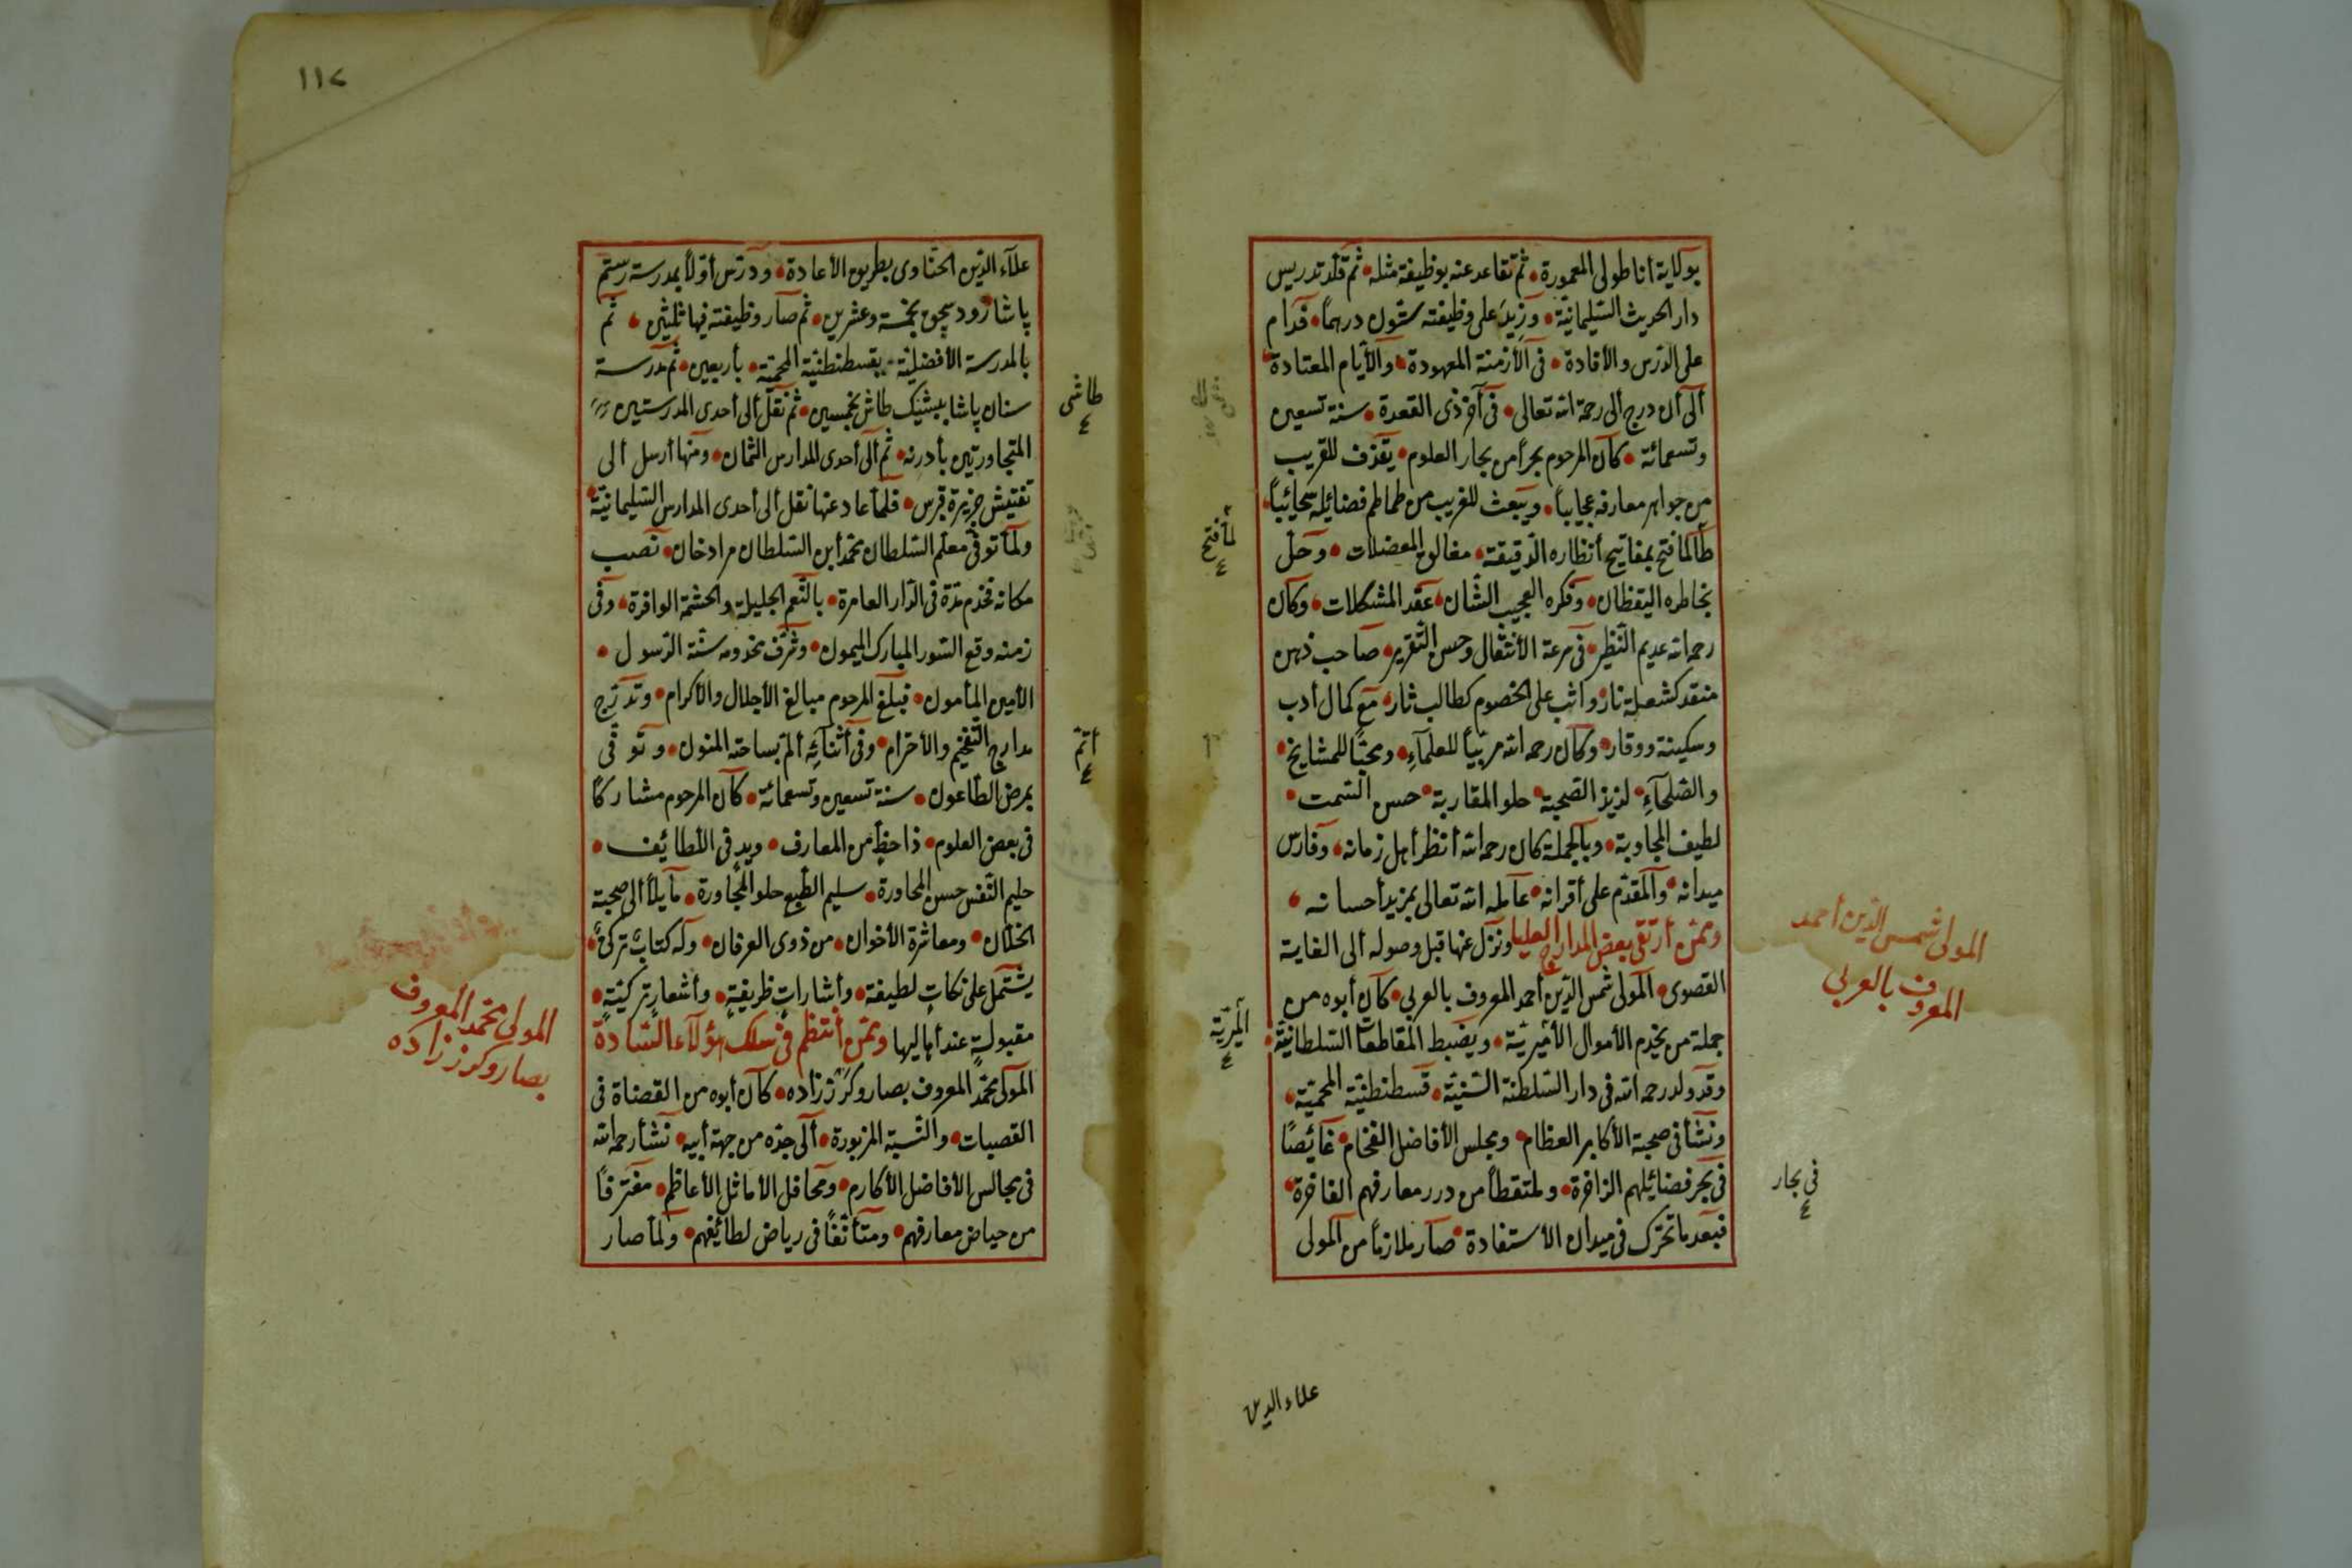 بولاية أناطولى المعمورة ثم تقاعد عنه بوظيفة مثله ثم قلد تدريس
دار الحديث السليمانية وزيد على وظيفته ستون درهماً فدام
على الدرس والأفادة فى الأزمنة المعهودة والأيام المعتادة
ألى أن درج ألى رحمة الله تعالى فى آخر ذى القعدة سنة تسعين
وتسعمائة كان المرحوم بحراً من بحار العلوم يقذف للقريب
من جواهر معارفه عجايباً ويبعث للغريب من طماطم فضائيله سحائيباً
طالما فتح بمفاتيح أنظاره الدقيقة مغالق المعضلات وحل
بخاطره اليقظان وفكره العجيب الشان عقد المشكلات وكان
رحمه الله عديم النظير فى سرعة الأنتقال وحسن التقرير صاحب ذهن
متقد كشعلة نار واثب على الخصوم كطالب ثار مع كمال أدب
وسكينة ووقار وكان رحمه الله مربياً للعلمآء ومحبًا للمشايخ
والصلحآء لذيذ الصحبة حلو المقاربة حسن السمت
لطيف المجاوبة وبالجملة كان رحمه الله أنظر أهل زمانه وفارس
ميدانه والمقدم على أقرانه عامله الله تعالى بمزيد أحسانه
وممن أرتقى بعض المدارج العليا ونزل عنها قبل وصوله ألى الغاية
القصوى المولى شمس الدين أحمد المعروف بالعربى كان أبوه من
جملة من يخدم الأموال الأميرية ويضبط المقاطعات السلطانية
وقد ولد رحمه الله فى دار السلطنة السنية قسطنطنية المحمية
ونشأ فى صحبة الأكابر العظام ومجلس الأفاضل الفخام غائيصًا
فى بحر فضائيلهم الزاخرة ولمتقطاً من درر معارفهم الفاخرة
فبعد ما تحرك فى ميدان الأستفادة صار ملازماً من المولى
لما فتح
٤
الميرية
٤
المولى شمس الدين أحمد
المعروف بالعربى
فى بحار
٤
علاء الدين
١١٧
علآء الدين الحناوى بطريق الأعادة ودرس أولاً بمدرسة رستم
پاشا برودسجق بخمسة وعشرين ثم صار وظيفته فيها ثلثين ثم
بالمدرسة الأفضلية بقسطنطنية المحمية بأربعين ثم مدرسة
سنان پاشا ببشيك طاش بخمسين ثم نقل ألى أحدى المدرستين
المتجاورتين بأدرنه ثم ألى أحدى المدارس الثمان ومنها أرسل ألى
تفتيش جزيرة قبرس فلما عاد عنها نقل ألى أحدى المدارس السليمانية
ولما توفى معلم السلطان محمد أبن السلطان مراد خان نصب
مكانه فخدم مدة فى الدار العامرة بالنعم الجليلة والحشمة الوافرة وفى
زمنه وقع السور المبارك الميمون وشرف مخدومه سنة الرسول
الأمين المأمون فبلغ المرحوم مبالغ الأجلال والأكرام وتدرج
مدارج التفخيم والأحترام وفى أثنائه ألم بساحته المنون وتوفى
بمرض الطاعون سنة تسعين وتسعمائة كان المرحوم مشاركًا
فى بعض العلوم ذا حظٍ من المعارف ويدٍ فى اللطائيف
حليم النفس حسن المحاورة سليم الطبع حلو المجاورة مايلاً ألى صحبة
الخلان ومعاشرة الأخوان من ذوى العرفان وله كتابٌ تركىٌ
يشتمل على نكاتٍ لطيفةٍ وأشاراتٍ ظريفةٍ وأشعارٍ تركيةٍ
مقبولةٍ عند أهاليها وممن أنتظم فى سلك هؤلآء السادة
المولى محمد المعروف بصاروكرز زاده كان أبوه من القضاة فى
القصبات والنسبة المزبورة ألى جده من جهة أبيه نشأ رحمه الله
فى مجالس الأفاضل الأكارم ومحافل الأماثل الأعاظم مغترفاً
من حياض معارفهم ومتأنقاً فى رياض لطائيفهم ولما صار
طاشى
٤
أتم
٤
المولى محمد المعروف
بصاروكرز زاده